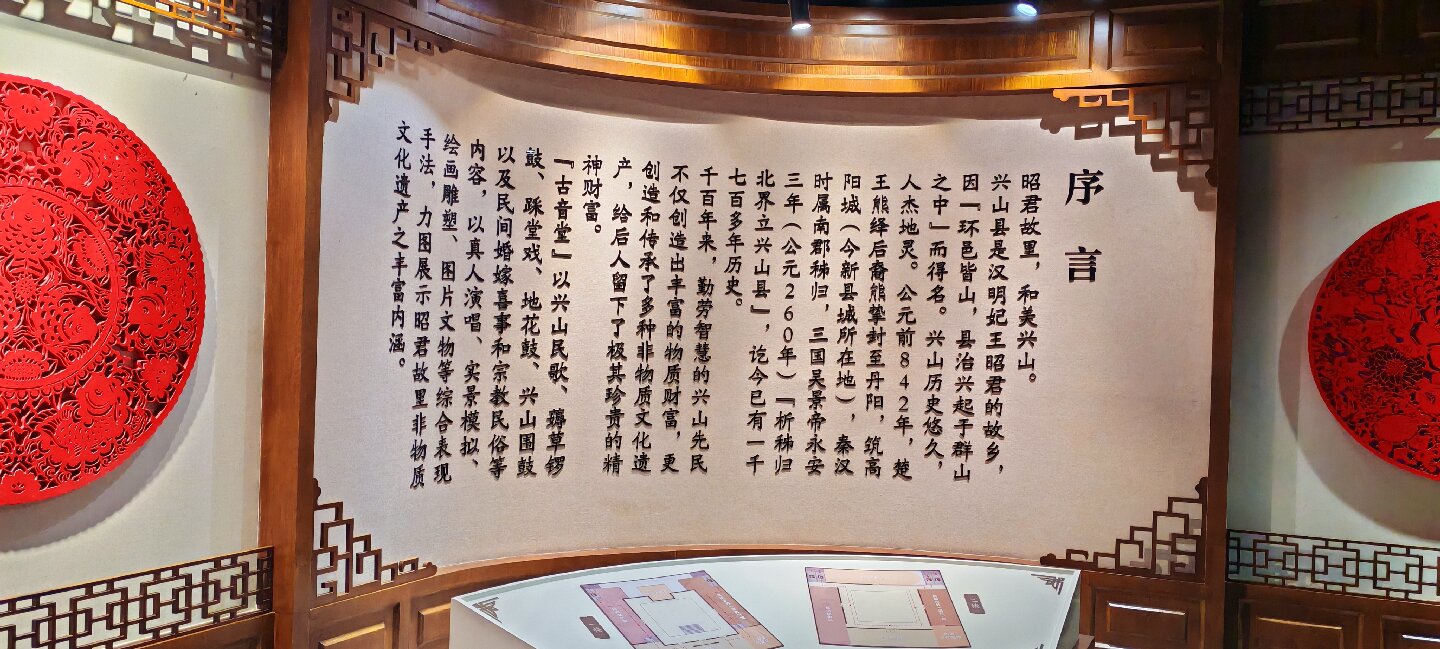 序言
昭君故里，和美兴山。
兴山县是汉明妃王昭君的故乡，
因「环邑皆山，县治兴起于群山
之中」而得名。兴山历史悠久，
人杰地灵。公元前842年，楚
王熊绎后裔熊挚封至丹阳，筑高
阳城（今新县城所在地），秦汉
时属南郡秭归，三国吴景帝永安
三年（公元260年）『析秭归
北界立兴山县』，讫今已有一千
七百多年历史。
千百年来，勤劳智慧的兴山先民
不仅创造出丰富的物质财富，更
创造和传承了多种非物质文化遗
产，给后人留下了极其珍贵的精
神财富。
『古音堂』以兴山民歌、薅草锣
鼓、踩堂戏、地花鼓、兴山围鼓
以及民间婚嫁喜事和宗教民俗等
内容，以真人演唱、实景模拟、
绘画雕塑、图片文物等综合表现
手法，力图展示昭君故里非物质
文化遗产之丰富内涵。
一楼
二楼